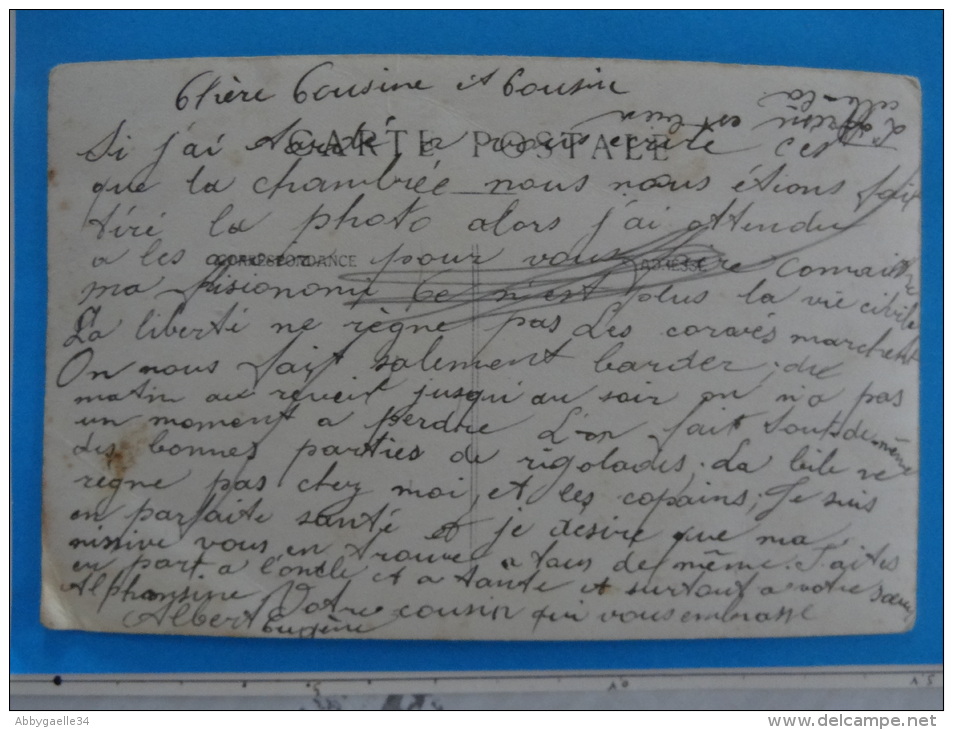 Chère Cousine et Cousin
Si j'ai tardé a vous ecrite c'est
CARTE POSTALE
que la chambrée nous nous étions fait
tiré la photo alors j'ai attendu
a les avoir pour vous faire Connaitre
CORRESPONDANCE
ADRESSE
ma fisionomi Ce n'est plus la vie civile
La liberté ne règne pas Les corvés marchent
On nous fait salement barder, du
matin au reveit jusqu'au soir on n'a pas
un moment a perdre L'on fait tout de même
des bonnes parties de rigolades. La bile ne
règne pas chez moi, et les copains; Je suis
en parfaite santé et je desire que ma
missive vous en trouve a tous de même. Faites
en part a l'oncle et a tante et surtout a votre sœur
Alphonsine Votre cousin qui vous embrasse
Albert
Eugène
est bien
celle-la
5
10
15
Abbygaelle34
www.delcampe.net